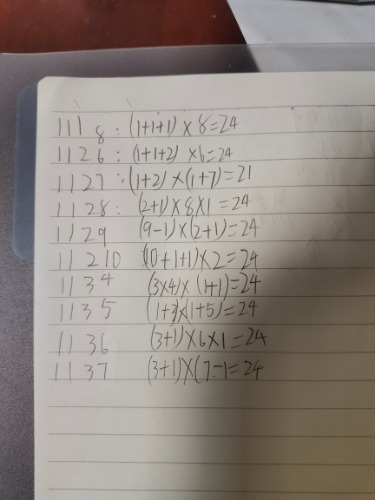 1 1 1 8 : (1+1+1) × 8=24
1 1 2 6 : (1+1+2) ×6=24
1 1 2 7 : (1+2) ×(1+7)=21
1 1 2 8: (2+1)×8×1 =24
1 1 2 9 (9-1)×(2+1)=24
1 1 2 10 (10+1+1)×2=24
1 1 3 4 (3×4)× (1+1)=24
1 1 3 5 (1+3)×(1+5)=24
1 1 3 6 (3+1)×6×1=24
1 1 3 7 (3+1)×(7-1=24